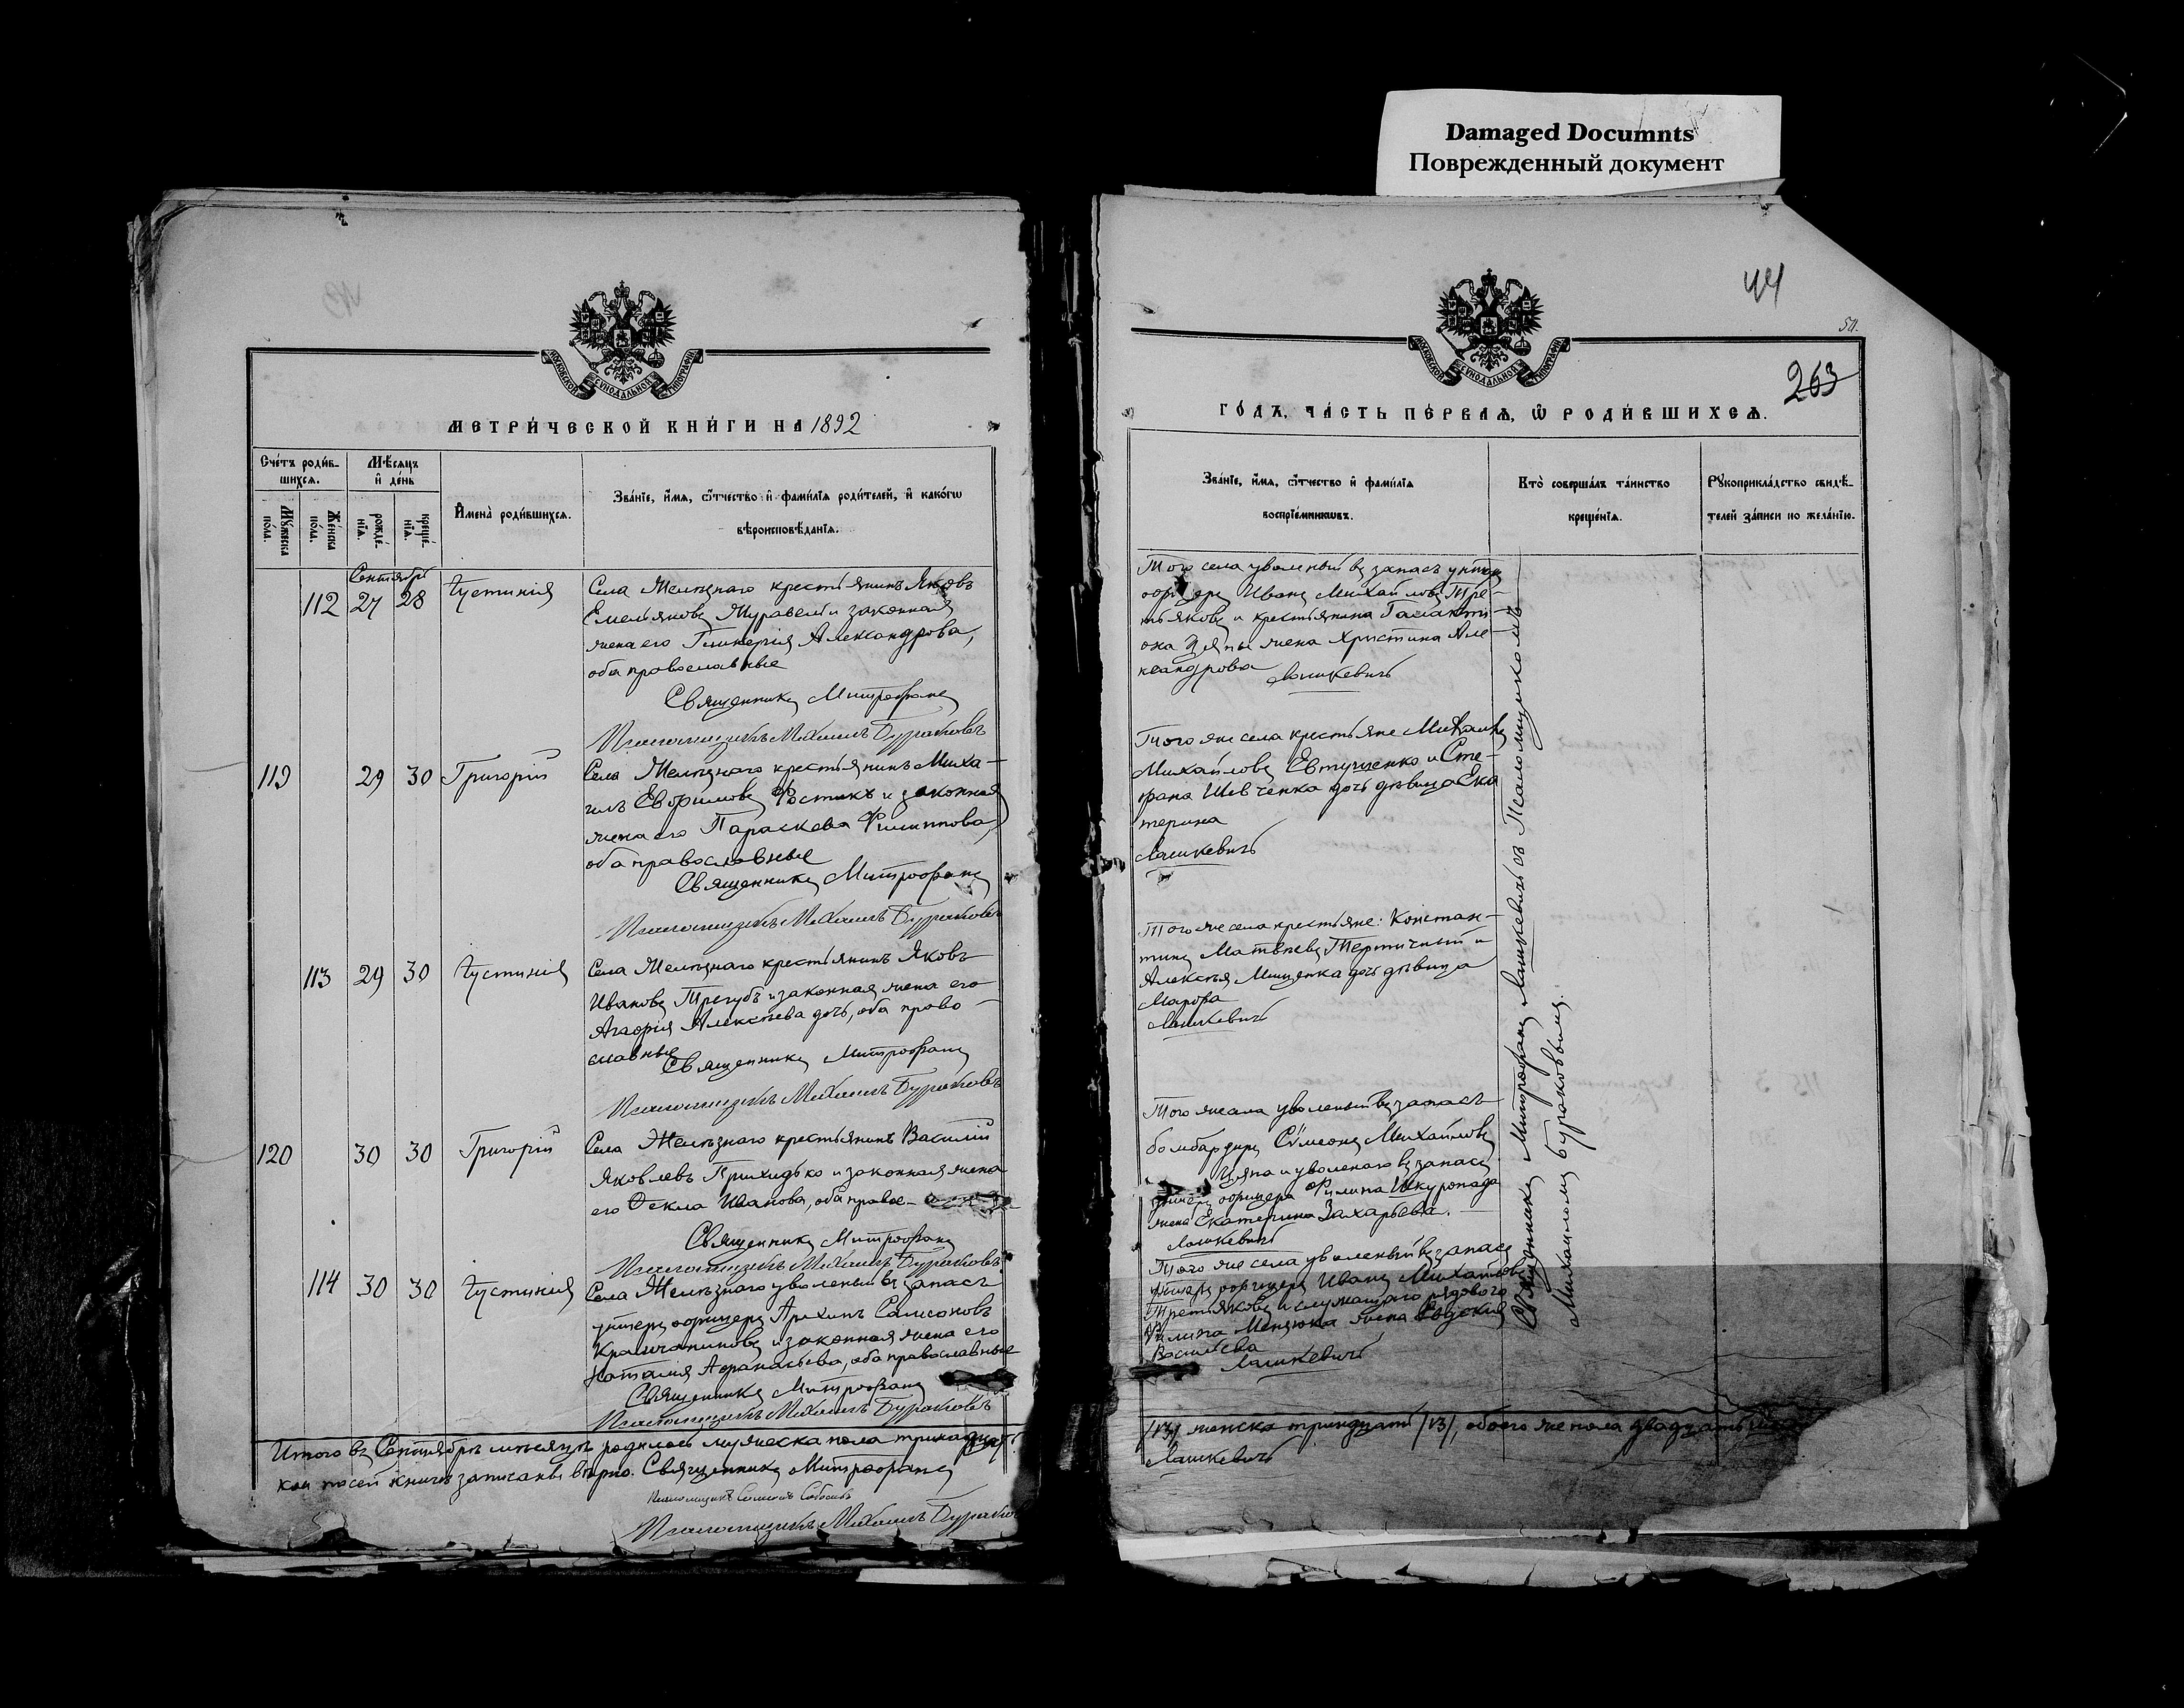 Damaged Documnts
Поврежденный документ
МЕТРИ́ЧЕСКОЙ КНИ́ГИ НА 1892
Сче́тъ роди́в-
шихсѧ.
Мѣ́сяцъ
и҆ де́нь
Мꙋ́жеска
по́ла.
Же́нска
по́ла.
рожде́-
нїѧ.
креще́-
нїѧ.
И҆мена̀ роди́вшихсѧ.
Зва́нїе, и҆́мѧ, ѻ҆́тчество и҆ фами́лїѧ роди́телей, и҆ како́гѡ
вѣроисповѣ́данїѧ.
Сентябрь
112 27 28 Іустинія
Села Желѣзнаго крестьянинъ Яковъ
Емельяновъ Журавель и законная
жена его Гликерія Александрова,
оба православные
Священникъ Митрофанъ
Псаломщикъ Михаилъ Бураковъ
119 29 30 Григорій
Села Желѣзнаго крестьянинъ Миха-
илъ Евфимовъ Костюкъ и законная
жена его Параскева Филиппова,
оба православные
Священникъ Митрофанъ
Псаломщикъ Михаилъ Бураковъ
113 29 30 Іустинія
Села Желѣзнаго крестьянинъ Яковъ
Ивановъ Трегубъ и законная жена его
Агафія Алексѣева дочь, оба право-
славные
Священникъ Митрофанъ
Псаломщикъ Михаилъ Бураковъ
120 30 30 Григорій
Села Желѣзнаго крестьянинъ Василій
Яковлевъ Прихидько и законная жена
его Ѳекла Иванова, оба правос-
Священникъ Митрофанъ
Псаломщикъ Михаилъ Бураковъ
114 30 30 Іустинія
Села Желѣзнаго уволеный въ запасъ
унтеръ офицеръ Архипъ Самсоновъ
и законная жена его
Наталія Афанасьева, оба православные
Священникъ Митрофанъ
Псаломщикъ Михаилъ Бураковъ
Итого въ Сентябрѣ мѣсяцѣ родилось мужеска пола тринадцать
кои по сей книгѣ записаны вѣрно. Священникъ Митрофанъ
Псаломщикъ Михаилъ Бураков
44
511.
263
ГО́ДЪ, ЧА́СТЬ ПЕ́РВАѦ, Ѡ҆ РОДИ́ВШИХСѦ.
Зва́нїе, и҆́мѧ, ѻ҆́тчество и҆ фами́лїѧ
воспрїе́мникѡвъ.
Кто̀ соверша́лъ та́инство
креще́нїѧ.
Рꙋкоприкла́дство свидѣ́-
телей за́писи по жела́нїю.
Того села уволеный въ запасъ унтеръ
офицеръ Иванъ Михайловъ Тре-
тьяковъ и крестьянина Галакті-
она Цяпы жена Христина Але-
ксандрова Лашкевичъ
Того же села крестьяне Михаилъ
Михайловъ Евтушенко и Сте-
фана Шевченка дочь дѣвица Ека
терина
Лашкевичъ
Того же села крестьяне: Констан-
тинъ Матвѣевъ Тертичный и
Алексѣя Мищенка дочь дѣвица
Марфа
Лашкевичъ
Того же села уволеный въ запасъ
бомбардиръ Сѵмеонъ Михайловъ
Цяпа и уволенаго въ запасъ
унтеръ офицера Филипа Шкуропада
жена Екатерина Захарьева.
Лашкевичъ
Того же села уволеный въ запасъ
унтеръ офицеръ Иванъ Михайловъ
Третьяковъ и служащаго рядоваго
Филипа жена Евдокія
Васильева
Лашкевичъ
Священникъ Митрофанъ Лашкевичъ съ Псаломщикомъ
Михаиломъ Бураковымъ.
/13/, женска тринадцать /13/, обоего же пола двадцать
Лашкевичъ